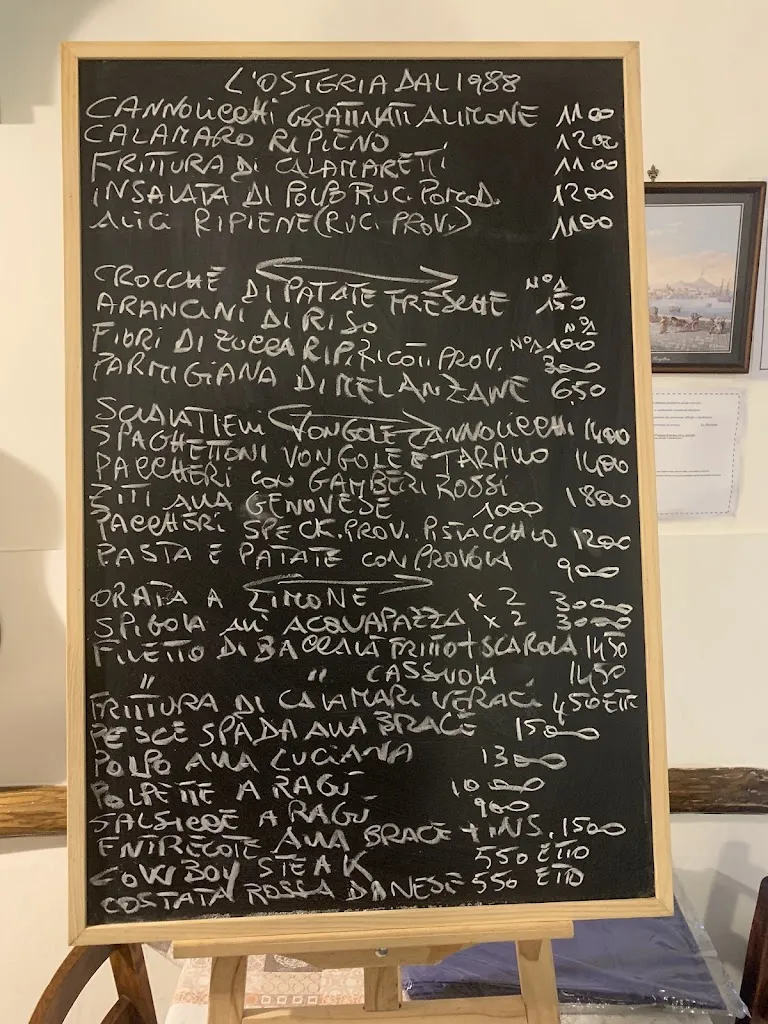 L'OSTERIA DAL 1988
CANNOLICCHI GRATINATI A LIMONE 1100
CALAMARO RIPIENO 1200
FRITTURA DI CALAMARETTI 1100
INSALATA DI POLPO RUC. POMOD. 1200
ALICI RIPIENE (RUC. PROV.) 1100
CROCCHÈ DI PATATE FRESCHE N°1 150
ARANCINI DI RISO N°1 100
FIORI DI ZUCCA RIP. RICOTT. PROV. N°1 300
PARMIGIANA DI MELANZANE 650
SCIALATIELLI VONGOLE CANNOLICCHI 1400
SPAGHETTONI VONGOLE E TARALLO 1400
PACCHERI CON GAMBERI ROSSI 1800
ZITI ALLA GENOVESE 1000
PACCHERI SPECK. PROV. PISTACCHIO 1200
PASTA E PATATE CON PROVOLA 900
ORATA A LIMONE X 2 3000
SPIGOLA ALL' ACQUAPAZZA X 2 3000
FILETTO DI BACCALÀ FRITTO + SCAROLA 1450
" " CASSUOLA 1450
FRITTURA DI CALAMARI VERACI 450 ETT
PESCE SPADA ALLA BRACE 1500
POLPO ALLA LUCIANA 1300
POLPETTE A RAGÙ 1000
SALSICCE A RAGÙ 900
ENTRECOTE ALLA BRACE + INS. 1500
COWBOY STEAK 550 ETTO
COSTATA ROSSA DANESE 550 ETTO